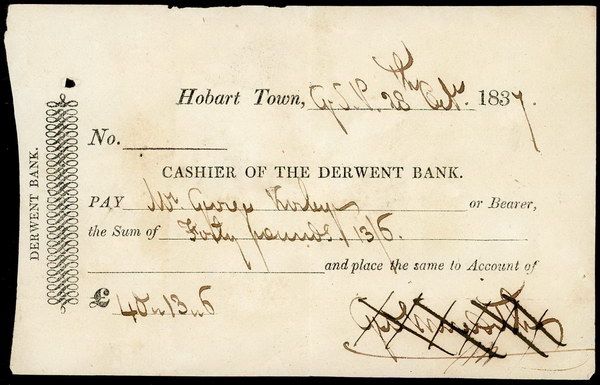 DERWENT BANK.
Hobart Town, 28th Octr. 1837.
No.
CASHIER OF THE DERWENT BANK.
PAY Mr George or Bearer,
the Sum of Forty pounds, 13/6.
and place the same to Account of
£ 40 " 13 " 6